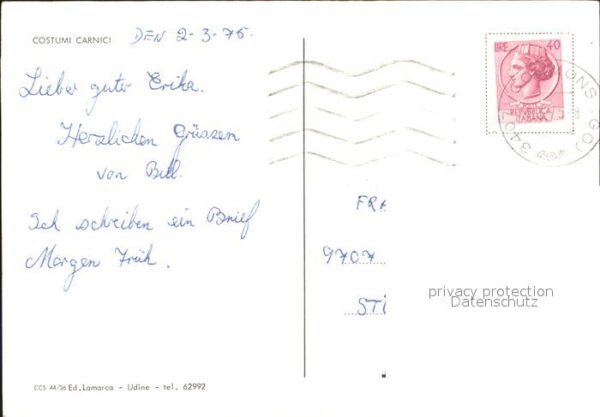 COSTUMI CARNICI
DEN 2-3-76.
Lieber guter Erika.
Herzlichen Grüssen
von Bill.
Ich schreiben ein Brief
Morgen Früh.
LIRE 40
REPUBBLICA
ITALIANA
FRA
9707
STI
privacy protection
Datenschutz
CCS 44/36 Ed. Lamarca - Udine - tel. 62992